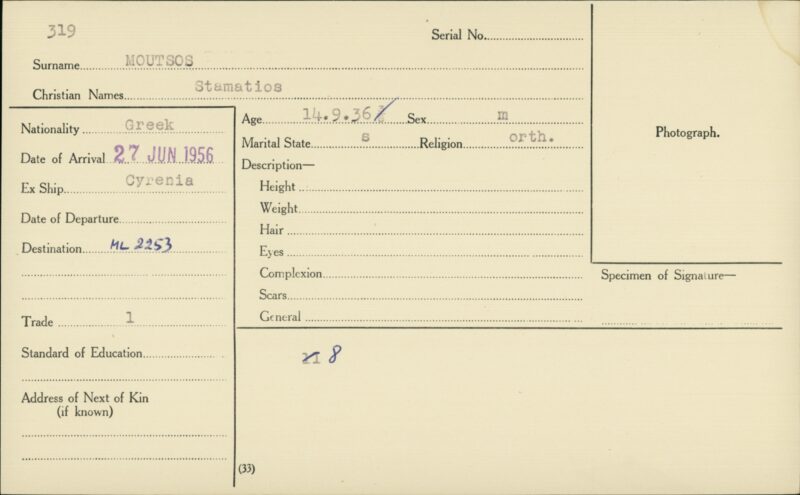 319
Serial No.
Surname MOUTSOS
Christian Names Stamatios
Nationality Greek
Date of Arrival 27 JUN 1956
Ex Ship Cyrenia
Date of Departure
Destination ML 2253
Trade 1
Standard of Education
Address of Next of Kin
(if known)
Age 14.9.36 Sex m
Marital State s Religion orth.
Description—
Height
Weight
Hair
Eyes
Complexion
Scars
General
8
(33)
Photograph.
Specimen of Signature—